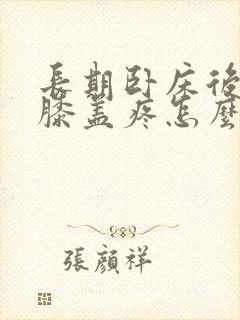 長期卧床後
膝蓋疼怎麼
張顏祥